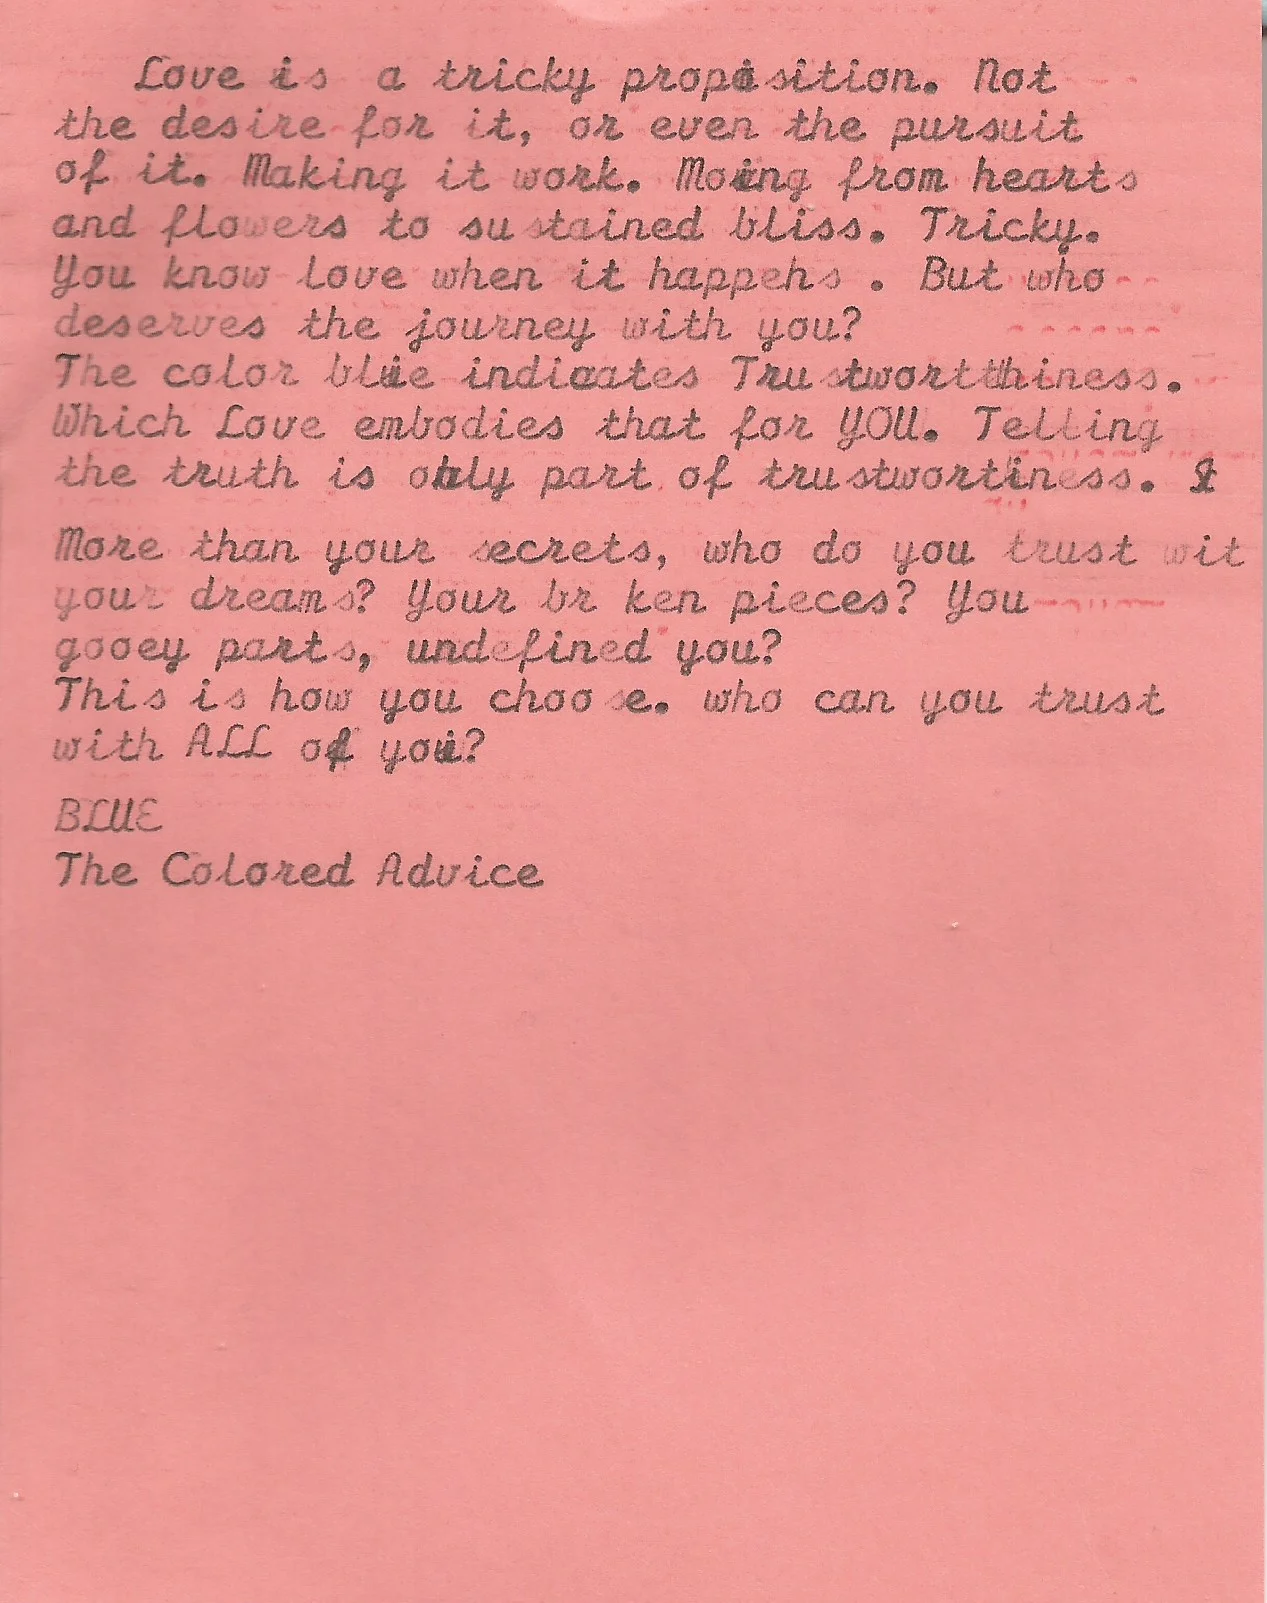 Love is a tricky proposition. Not
the desire for it, or even the pursuit
of it. Making it work. Moving from hearts
and flowers to sustained bliss. Tricky.
You know love when it happens . But who
deserves the journey with you?
The color blue indicates Trustwortthiness.
Which Love embodies that for YOU. Telling
the truth is only part of trustwortiness.
More than your secrets, who do you trust wit
your dreams? Your br ken pieces? You
gooey parts, undefined you?
This is how you choose. who can you trust
with ALL of you?
BLUE
The Colored Advice